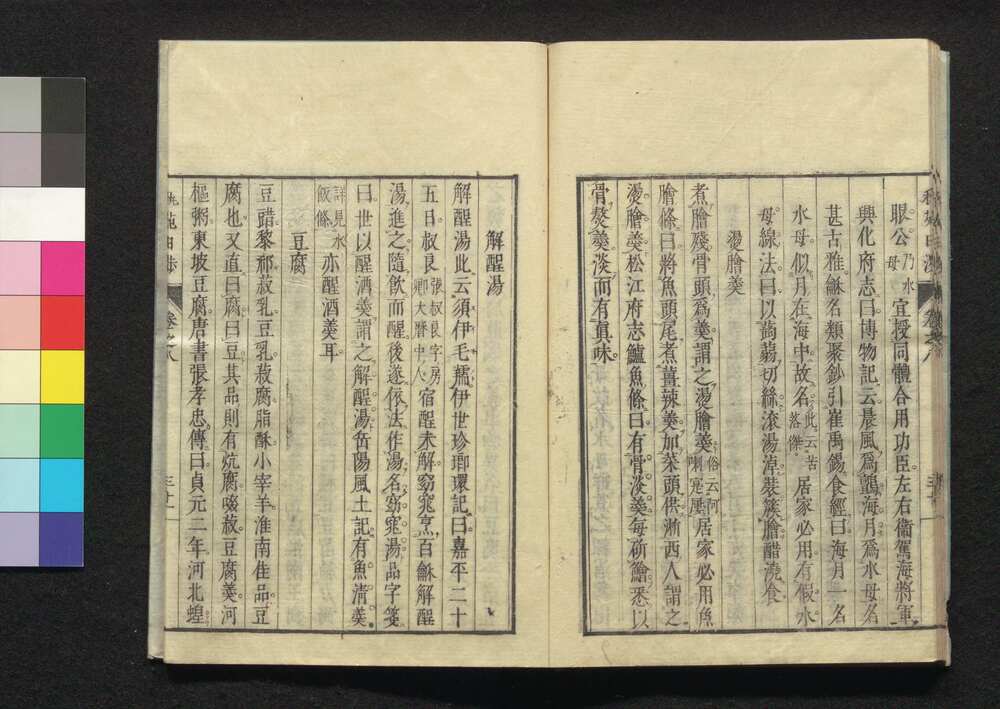 眼公乃水母宜授同體合用功臣左右衞駕海將軍
興化府志曰博物記云晨風爲鸇海月爲水母名
甚古雅龢名類聚鈔引崔禹錫食經曰海月一名
水母似月在海中故名此云苦落傑居家必用有假水
母線法曰以蒟蒻切絲滾湯淖裝簇膾醋澆食
燙膾羹
煮膾殘骨頭爲羹謂之燙膾羹俗云阿喇寔屢居家必用魚
膾條曰將魚頭尾煮薑辣羹加菜頭供浙西人謂之
燙膾羹松江府志鱸魚條曰有骨淡羹每斫鱠悉以
骨熬羹淡而有眞味
解酲湯
解酲湯此云須伊毛孺伊世珍瑯環記曰嘉平二十
五日叔良張叔良字房卿大曆中人宿酲未解窈窕烹百龢解酲
湯進之隨飲而醒後遂依法作湯名窈窕湯品字箋
曰世以醒酒羹謂之解酲湯岳陽風土記有魚清羹
詳見水飯條亦醒酒羹耳
豆腐
豆腊黎祁菽乳豆乳菽腐脂酥小宰羊淮南佳品豆
腐也又直曰腐曰豆其品則有炕腐啜菽豆腐羹河
樞粥東坡豆腐唐書張孝忠傳曰貞元二年河北蝗